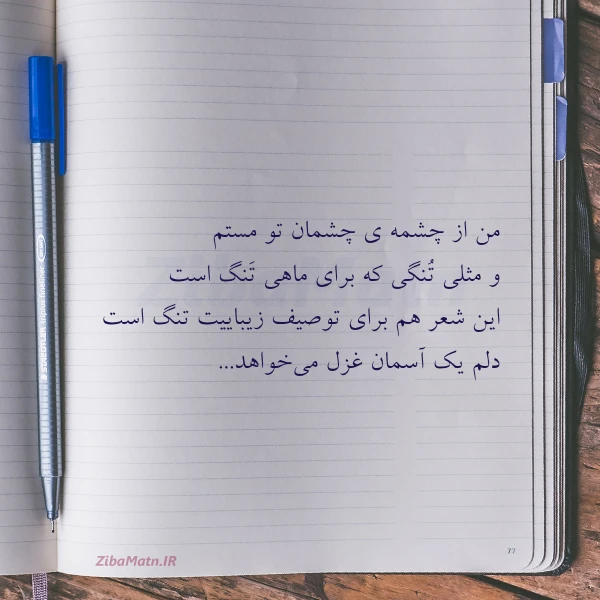 من از چشمه ی چشمان تو مستم
و مثلی تُنگی که برای ماهی تَنگ است
این شعر هم برای توصیف زیباییت تنگ است
دلم یک آسمان غزل می‌خواهد...
ZibaMatn.IR